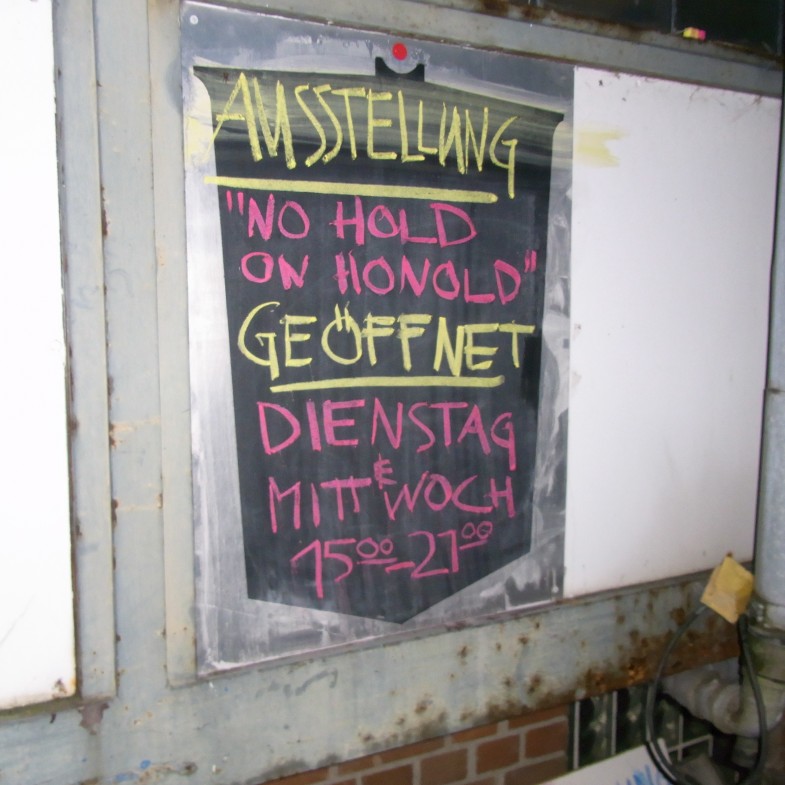 AUSSTELLUNG
"NO HOLD
ON HONOLD"
GEÖFFNET
DIENSTAG
&
MITTWOCH
15⁰⁰-21⁰⁰